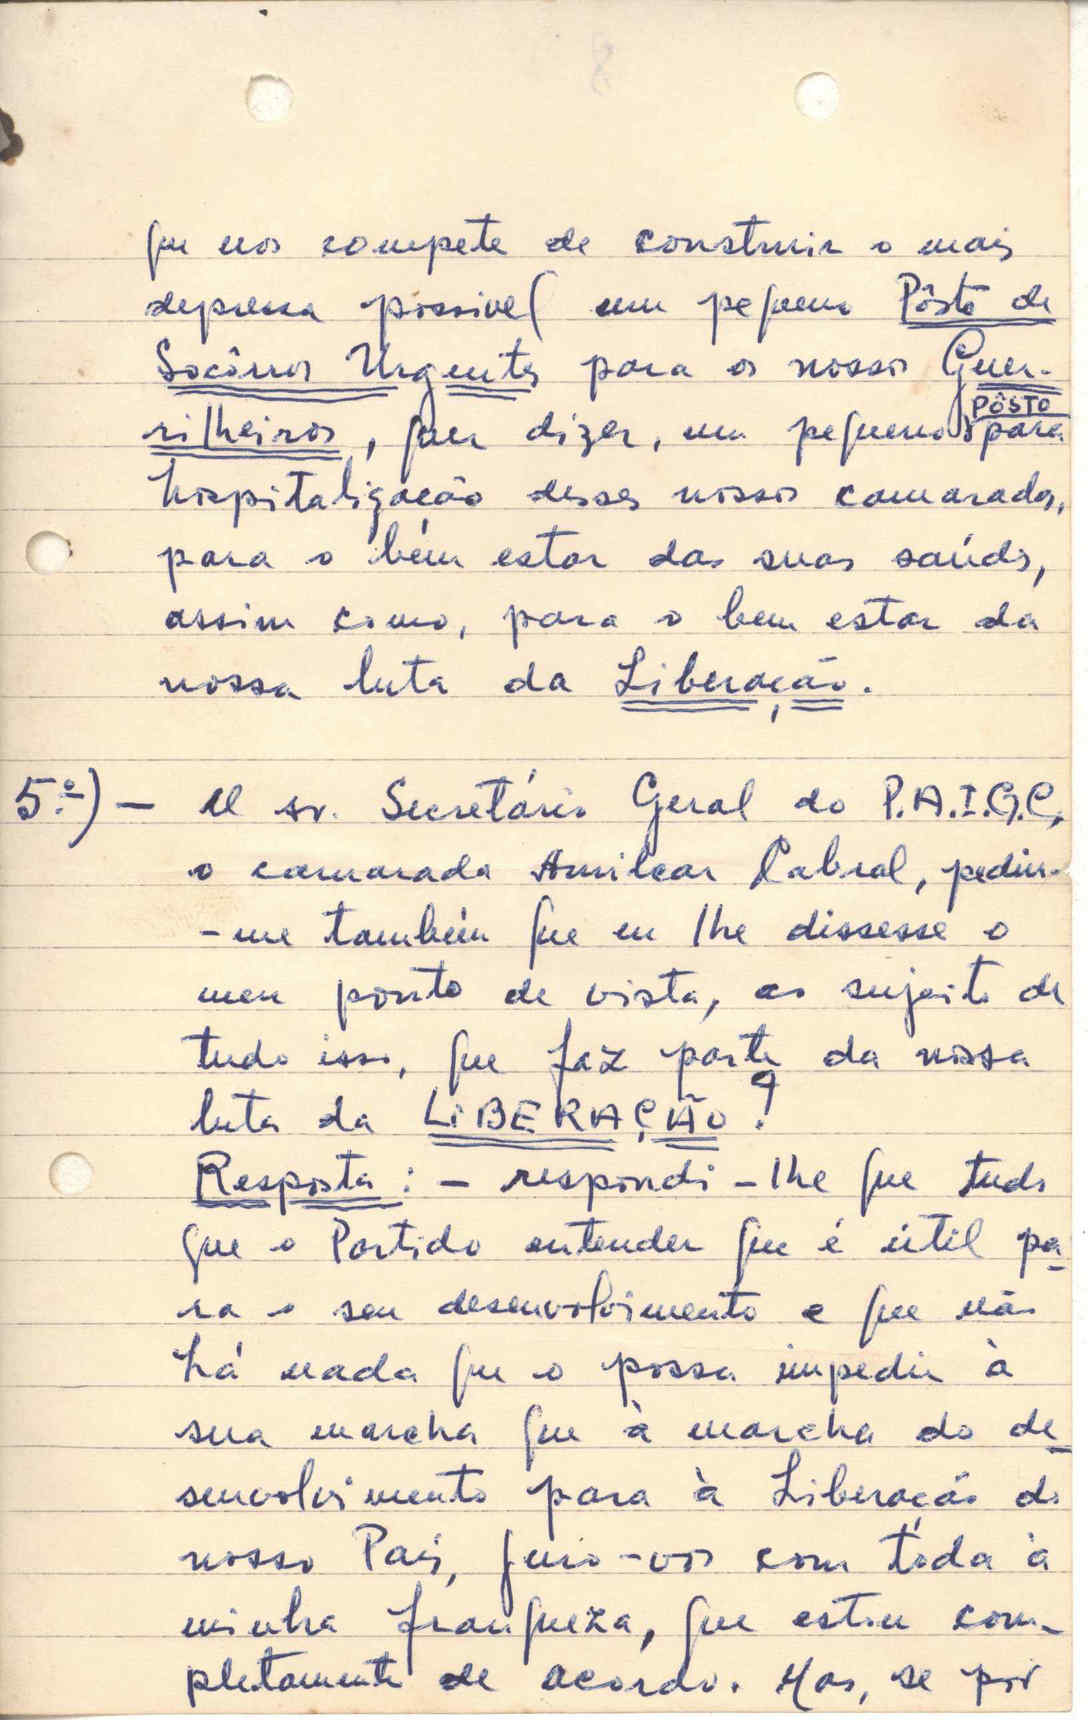 que nos compete de construir o mais
depressa possivel um pequeno Pôsto de
Socôrros Urgentes para os nossos Guer-
rilheiros, quer dizer, um pequeno PÔSTO para
hospitalização desses nossos camaradas,
para o bém estar das suas saúds,
assim como, para o bem estar da
nossa luta da Liberação.
5.º) — O sr. Secretário Geral do P.A.I.G.C.
o camarada Amilcar Cabral, pediu-
-me também que eu lhe dissesse o
meu ponto de vista, ao sujeito de
tudo isso, que faz parte da nossa
luta da LIBERAÇÃO?
Resposta: — respondi-lhe que tudo
que o Partido entender que é útil pa-
ra o seu desenvolvimento e que não
há nada que o possa impedir à
sua marcha que à marcha do de-
senvolvimento para à Liberação do
nosso País, juro-vos com tôda à
minha franqueza, que estou com-
pletamente de acordo. Mas, se por